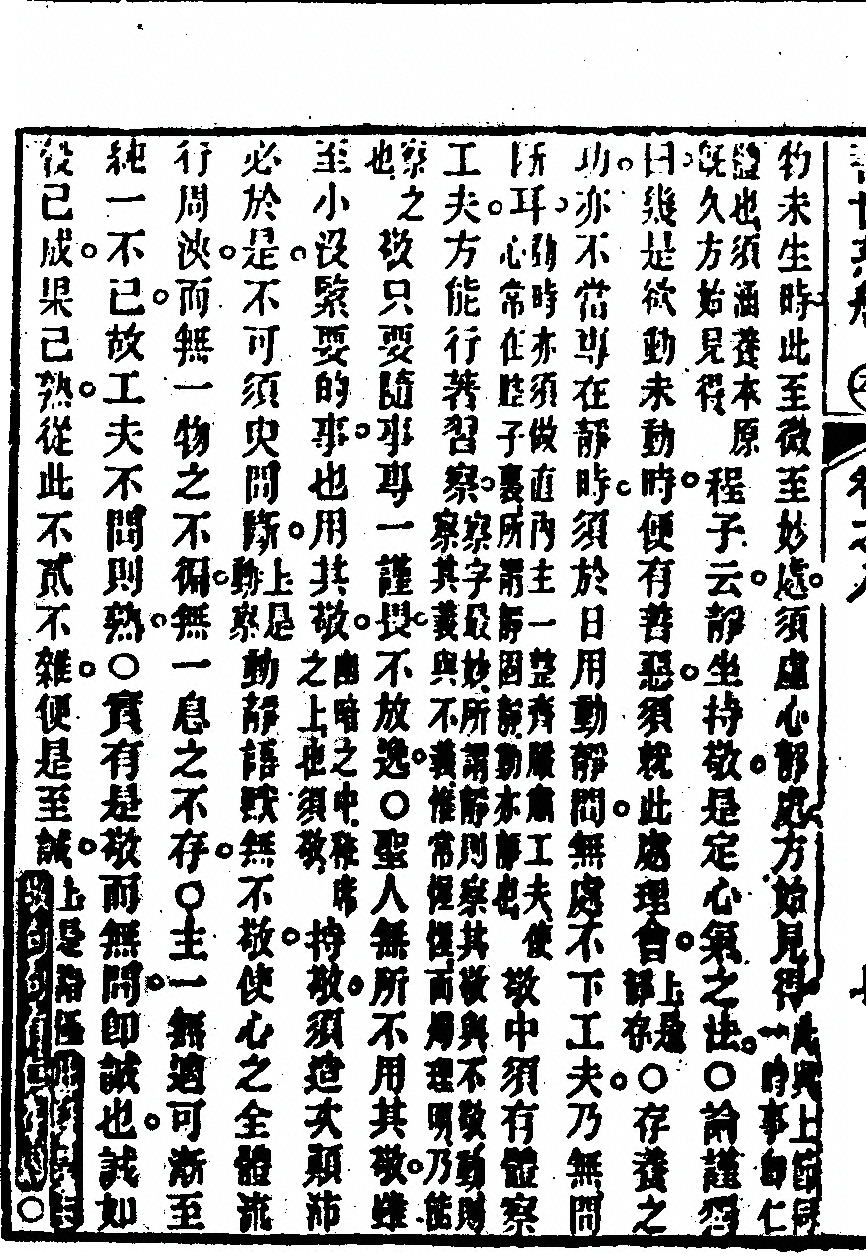 物未生時此至微至妙處須虛心靜處方始見得此與上節同一時事卽仁
體也須涵養本原旣久方始見得程子云靜坐持敬是定心氣之法○論謹獨
曰幾是欲動未動時便有善惡須就此處理會上是靜存○存養之
功亦不當專在靜時須於日用動靜間無處不下工夫乃無間
所耳動時亦須做直內主一整齊嚴肅工夫使心常在腔子裏所謂靜固靜動亦靜也敬中須有體察
工夫方能行著習察察字最妙所謂靜則察其敬與不敬動則察其義與不義惟常惺惺而燭理明乃能
察之也敬只要隨事專一謹畏不放逸○聖人無所不用其敬雖
至小沒緊要的事也用其敬幽暗之中袵席之上也須敬持敬須造次顚沛
必於是不可須臾間斷上是動察動靜語默無不敬使心之全體流
行周浹而無一物之不徧無一息之不存○主一無適可漸至
純一不已故工夫不間則熟○實有是敬而無間卽誠也誠如
穀已成果已熟從此不貳不雜便是至誠上是○